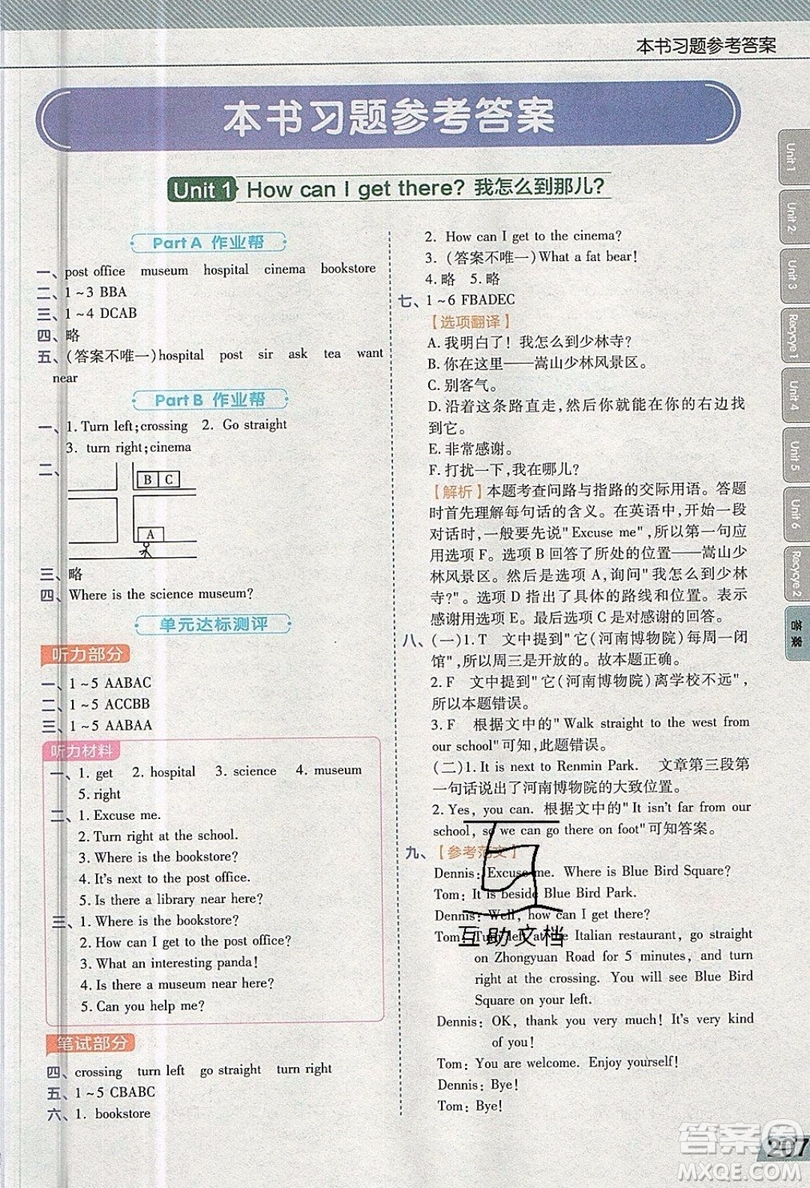 本书习题参考答案
本书习题参考答案
Unit 1 How can I get there? 我怎么到那儿?
Part A 作业帮
一、post office museum hospital cinema bookstore
二、1~3 BBA
三、1~4 DCAB
四、略
五、(答案不唯一)hospital post sir ask tea want
near
Part B 作业帮
一、1. Turn left;crossing 2. Go straight
3. turn right;cinema
二、
B C
A
三、略
四、Where is the science museum?
单元达标测评
听力部分
一、1~5 AABAC
二、1~5 ACCBB
三、1~5 AABAA
听力材料
一、1. get 2. hospital 3. science 4. museum
5. right
二、1. Excuse me.
2. Turn right at the school.
3. Where is the bookstore?
4. It's next to the post office.
5. Is there a library near here?
三、1. Where is the bookstore?
2. How can I get to the post office?
3. What an interesting panda!
4. Is there a museum near here?
5. Can you help me?
笔试部分
四、crossing turn left go straight turn right
五、1~5 CBABC
六、1. bookstore
2. How can I get to the cinema?
3. (答案不唯一)What a fat bear!
4. 略 5. 略
七、1~6 FBADEC
【选项翻译】
A. 我明白了!我怎么到少林寺?
B. 你在这里——嵩山少林风景区。
C. 别客气。
D. 沿着这条路直走,然后你就能在你的右边找
到它。
E. 非常感谢。
F. 打扰一下,我在哪儿?
【解析】本题考查问路与指路的交际用语。答题
时首先理解每句话的含义。在英语中,开始一段
对话时,一般要先说"Excuse me",所以第一句应
用选项 F。选项 B 回答了所处的位置——嵩山少
林风景区。然后是选项 A,询问"我怎么到少林
寺?"选项 D 指出了具体的路线和位置。选项 E 表示
感谢用语。选项 C 是对感谢的回答。
八、(一)1. T 文中提到"它(河南博物院)每周一闭
馆",所以周三是开放的。故本题正确。
2. F 文中提到"它(河南博物院)离学校不远",所
以本题错误。
3. F 根据文中的"Walk straight to the west from
our school"可知,此题错误。
(二)1. It is next to Renmin Park. 文章第三段第
一句话说出了河南博物院的大致位置。
2. Yes, you can. 根据文中的"It isn't far from our
school, so we can go there on foot"可知答案。
九、【参考范文】
Dennis: Excuse me. Where is Blue Bird Square?
Tom: It is beside Blue Bird Park.
Dennis: Well, how can I get there?
Tom: Turn left at the Italian restaurant, go straight
on Zhongyuan Road for 5 minutes, and turn
right at the crossing. You will see Blue Bird
Square on your left.
Dennis: OK, thank you very much! It's very nice
of you.
Tom: You are welcome. Enjoy yourself!
Dennis: Bye!
Tom: Bye!
互助文档
Unit 1
Unit 2
Unit 3
Recycye 1
Unit 4
Unit 5
Unit 6
Recycye 2
答案
207
答案圈
MXQE.COM